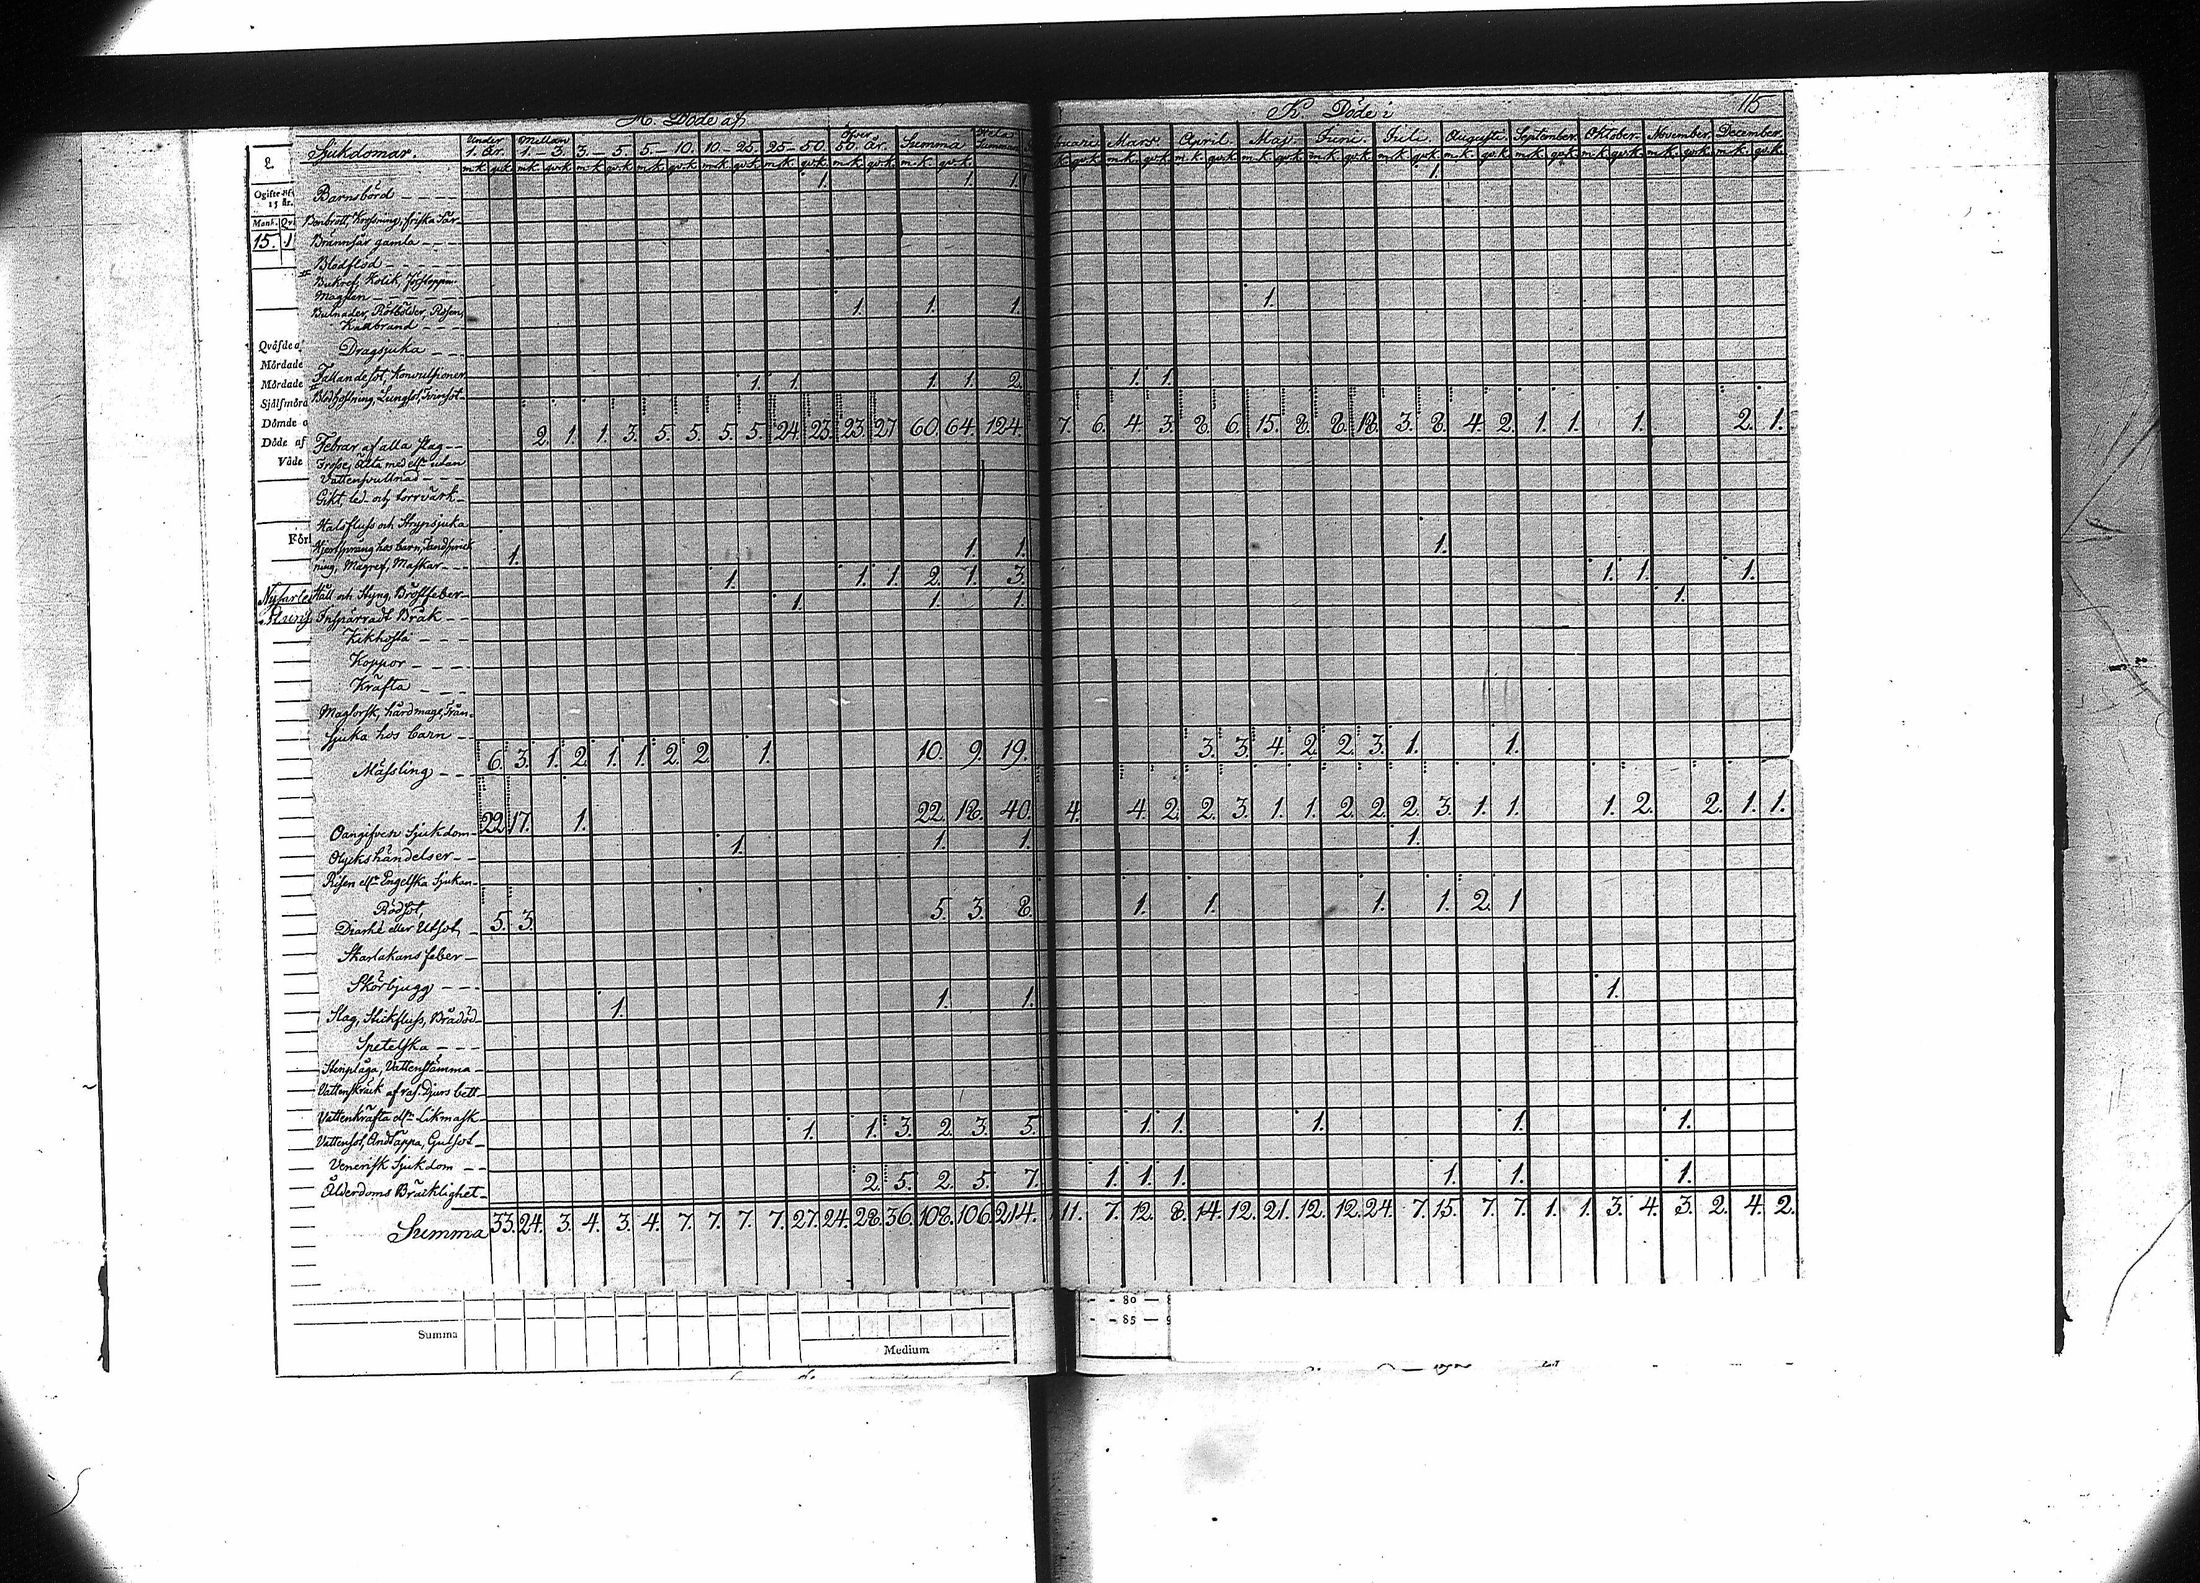 K. Döde af
K. Döde i
115
Sjukdomar. Under 1. År. Mellan 1. 3. 3. – 5. 5. – 10. 10. – 25. 25. – 50. Öfver 50. År. Summa Hela Summan
Mars. April. Maj. Juni. Juli. Augusti. September. Oktober. November. December.
m.k. qv.k. m.k. qv.k. m.k. qv.k. m.k. qv.k. m.k. qv.k. m.k. qv.k. m.k. qv.k. m.k. qv.k.
qv.k. m.k. qv.k. m.k. qv.k. m.k. qv.k. m.k. qv.k. m.k. qv.k. m.k. qv.k. m.k. qv.k. m.k. qv.k. m.k. qv.k. m.k. qv.k.
Barnsbörd 1. 1. 1. 1.
Benbrott, Krossning, friska Sår
Brännsår gamla
Blodflöd
Bukref, Kolik, Förstoppn.
Magsten
Bulnader, Rötbölder, Rosen, 1. 1. 1. 1.
Kallbrand
Dragsjuka
Fallandesot, Konvulsioner
Blodhostning, Lungsot, Tvinsot 1. 1. 1. 1. 2. 1. 1.
Febrar af alla slag 2. 1. 1. 3. 5. 5. 5. 5. 24. 23. 23. 27. 60. 64. 124. 7. 6. 4. 3. 8. 6. 15. 8. 8. 18. 3. 8. 4. 2. 1. 1. 1. 2. 1.
Frosse, Älta med eller utan
Vattensvullnad
Gikt, led och torrvärk
Halsfluss och Strypsjuka
Hjertsprang hos barn,
ning, Magref, Maskar 1. 1. 1. 1.
Håll och Styng, Bröstfeber 1. 1. 1. 2. 1. 3. 1. 1. 1.
Inspärradt Bråk 1. 1. 1. 1.
Kikhosta
Koppor
Kräfta
Magtorsk, hård mage, Trån-
sjuka hos barn
Mässling 6. 3. 1. 2. 1. 1. 2. 2. 1. 10. 9. 19. 3. 3. 4. 2. 2. 3. 1. 1.
Oangifven Sjukdom 22. 17. 1. 22. 18. 40. 4. 4. 2. 2. 3. 1. 1. 2. 2. 2. 3. 1. 1. 1. 2. 2. 1. 1.
Olyckshändelser 1. 1. 1. 1.
Risen eller Engelska Sjukan
Rödsot,
Diarhé eller Utsot, 5. 3. 5. 3. 8. 1. 1. 1. 1. 2. 1
Skarlakansfeber
Skörbjugg
Slag, Stickfluss, Brådöd 1. 1. 1. 1.
Spetelska
Stenplåga, Vattenstämma
Vattenskräck af ras. Djurs bett
Vattenkräfta eller Likmask
Vattensot, Andtäppa, Gulsot 1. 1. 3. 2. 3. 5. 1. 1. 1. 1. 1.
Venerisk Sjukdom
Ålderdoms Bräcklighet 2. 5. 2. 5. 7. 1. 1. 1. 1. 1. 1.
Summa 33. 24. 3. 4. 3. 4. 7. 7. 7. 7. 27. 24. 28. 36. 108. 106. 214. 11. 7. 12. 8. 14. 12. 21. 12. 12. 24. 7. 15. 7. 7. 1. 1. 3. 4. 3. 2. 4. 2.
2.
Ogifte
15 år.
Mank. Qv
15. 1
Qväfde a
Mördade
Mördade
Själfmörd
Dömde
Döde af
Våde
Summa
Medium
- - 80 —
- - 85 —